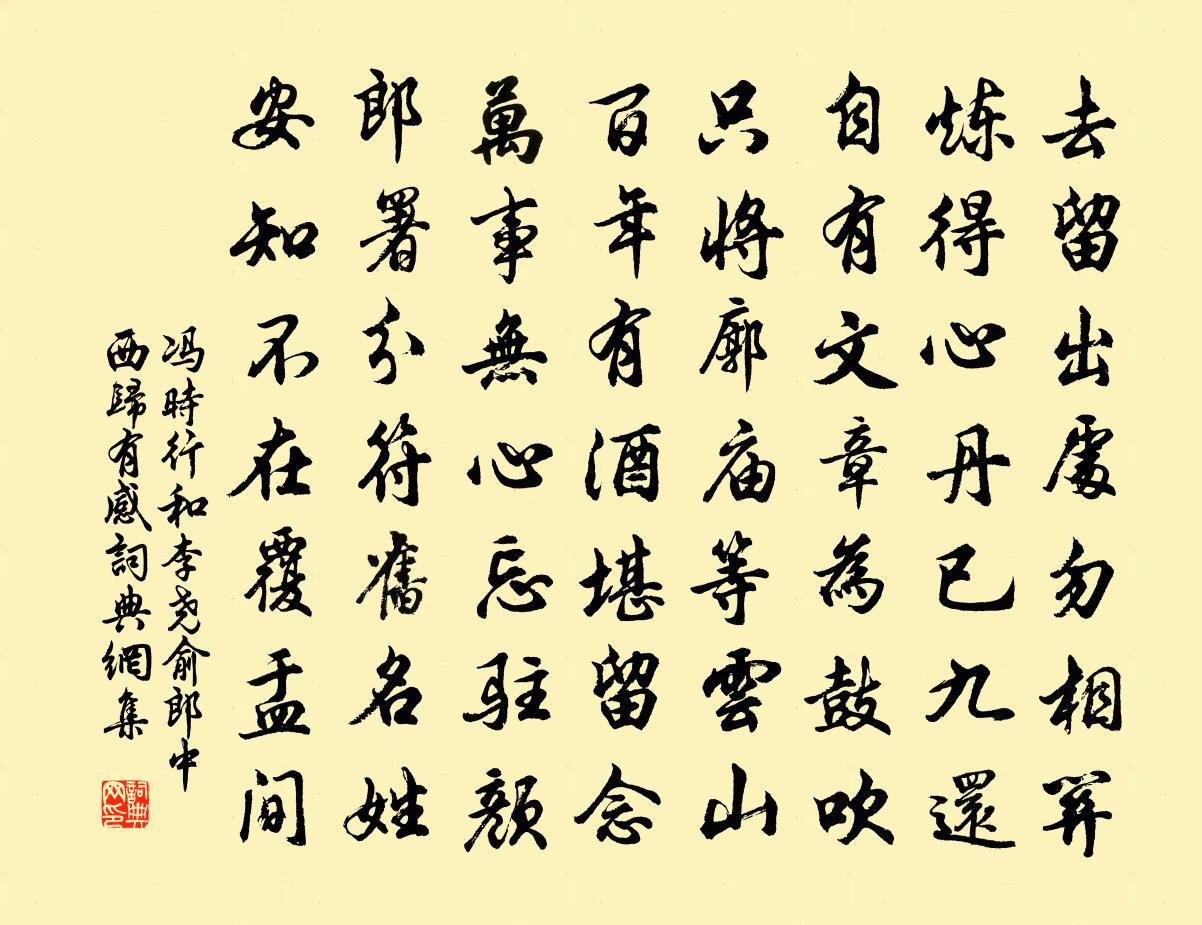 去留出處勿相關
炼得心丹已九還
自有文章為鼓吹
只將廓庙等雲山
百年有酒堪留念
萬事無心忘駐顏
郎署分符舊名姓
安知不在覆盂間
冯時行和李尧俞郎中
西歸有感詞典網集
詞典
网印